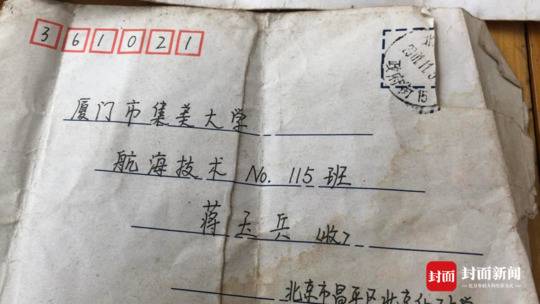 361021
厦门市集美大学
航海技术 No. 115班
蒋玉兵 收
北京市昌平区北京化工大学
封面 封面新闻